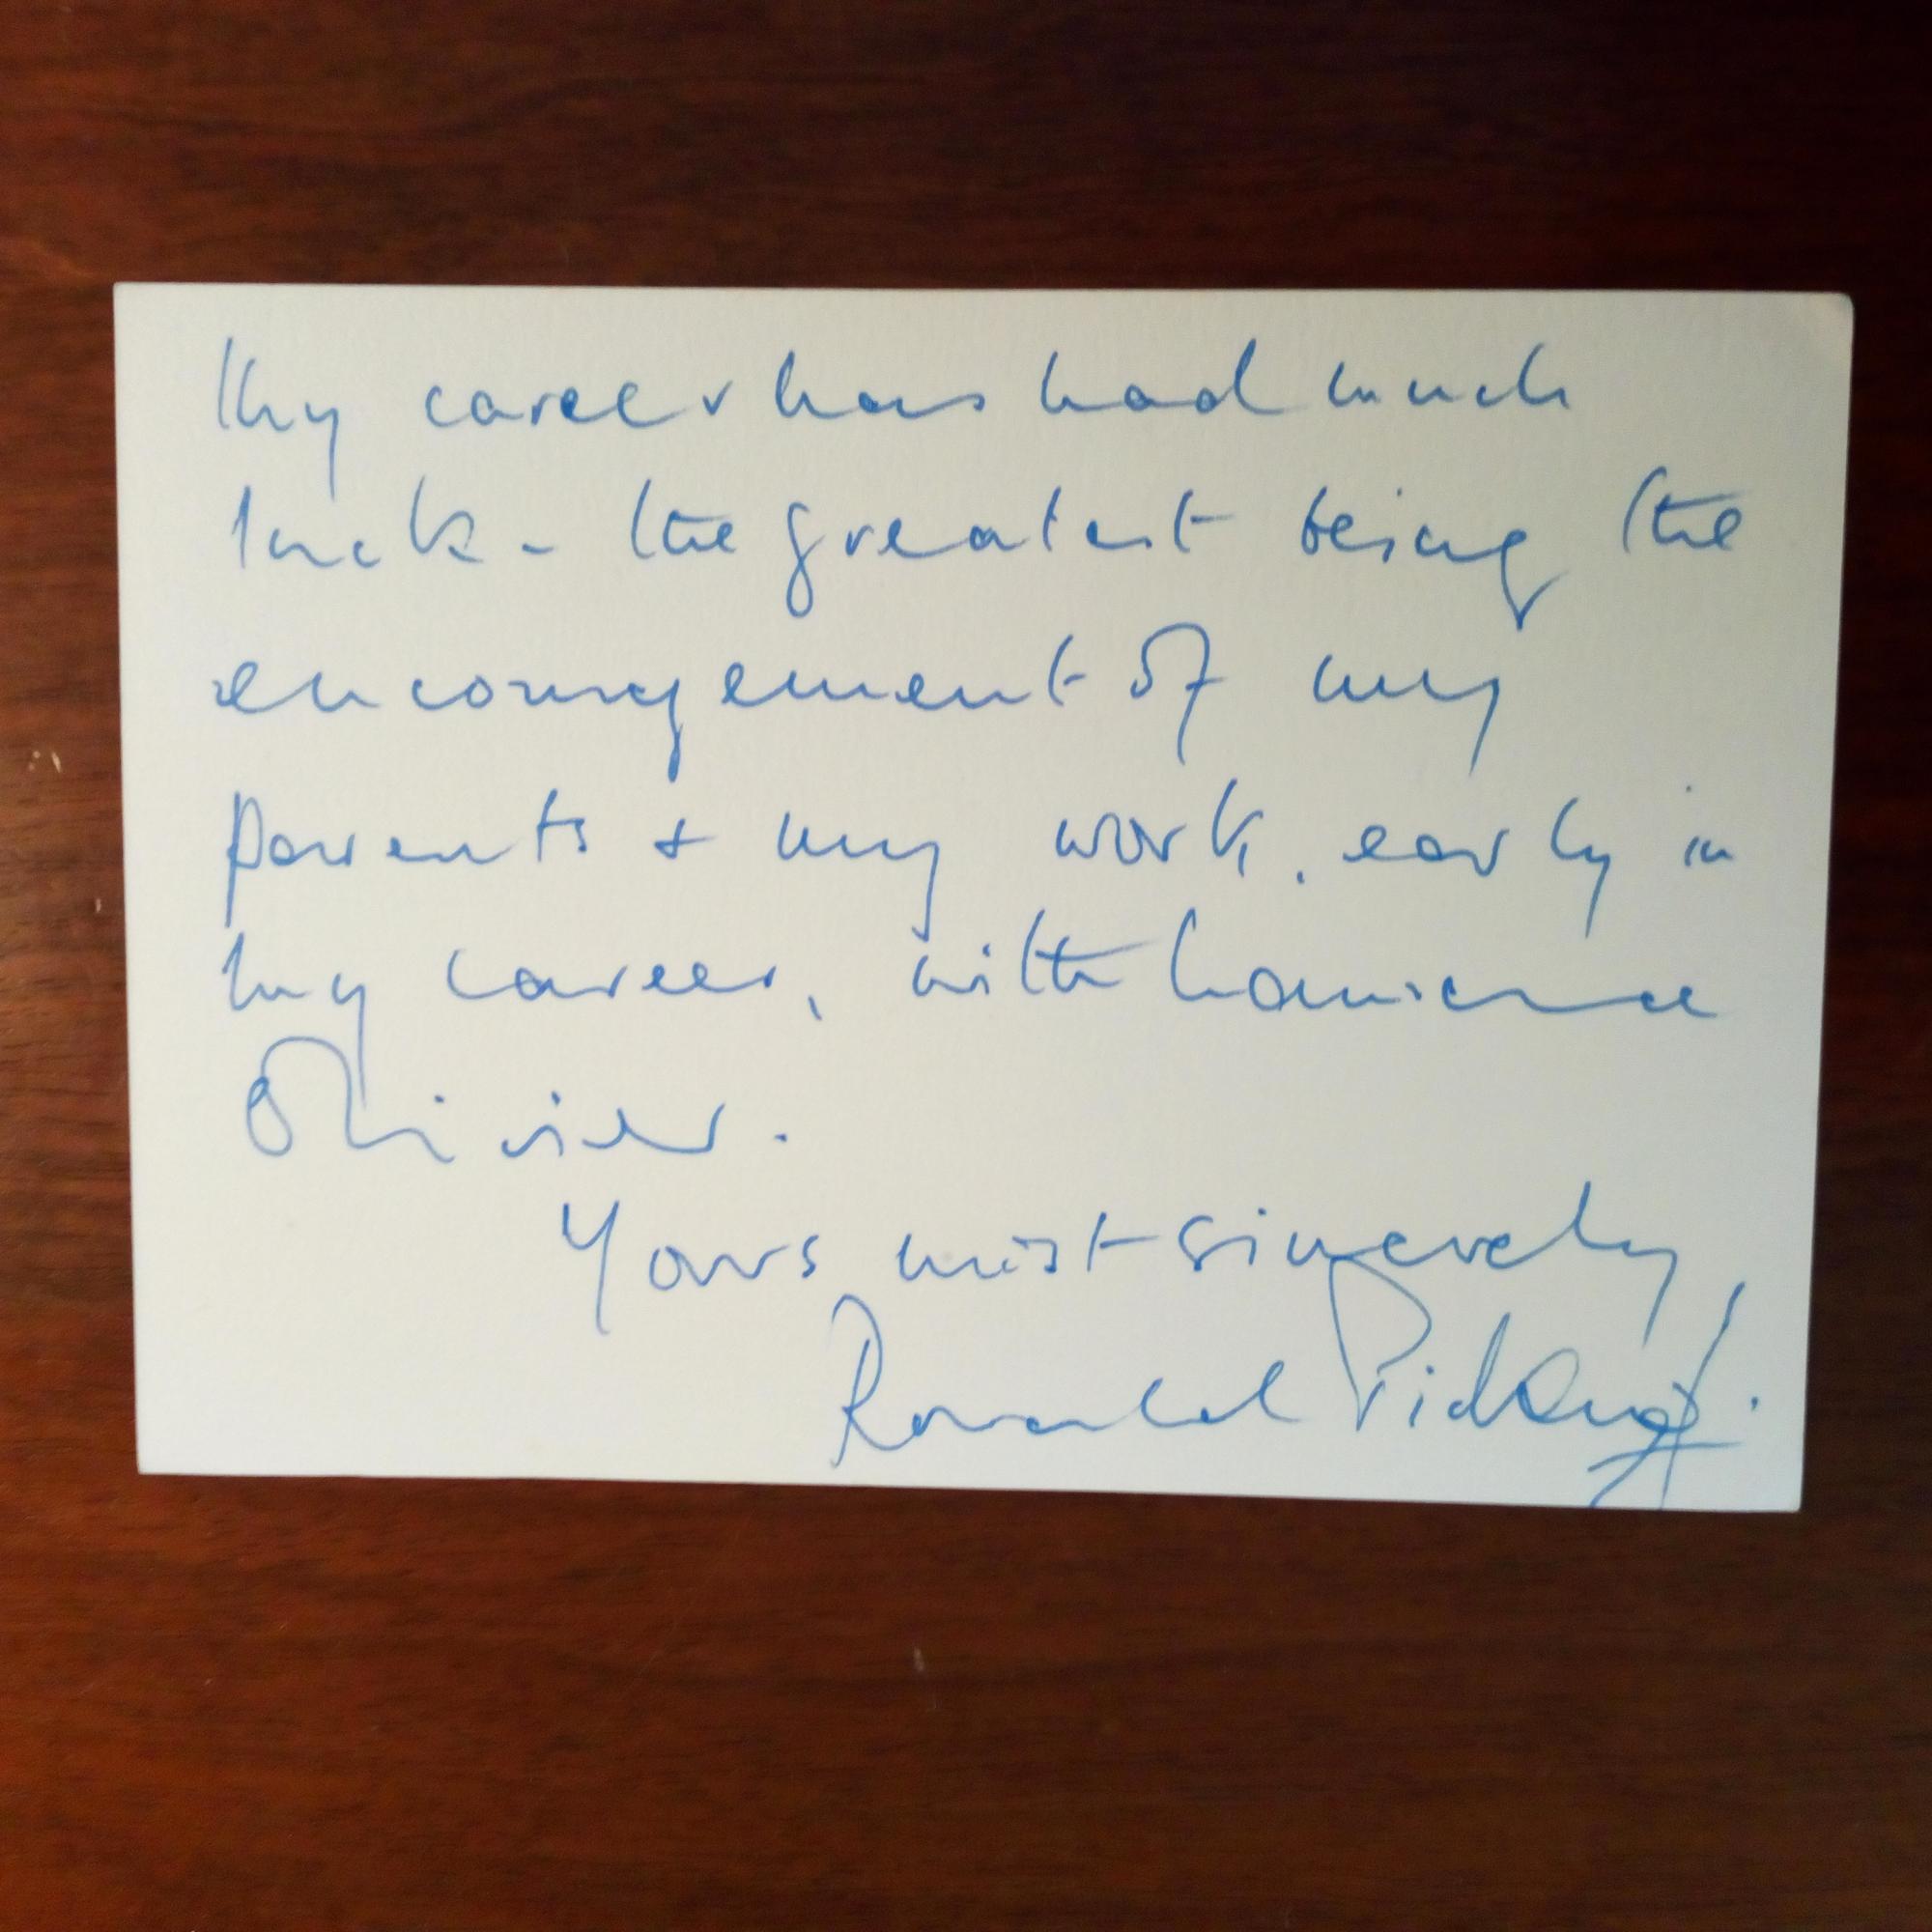 My career has had much
luck - the greatest being the
encouragement of my
parents & my work, early in
my career, with Laurence
Olivier.
Yours most sincerely,
Ronald Pickup.